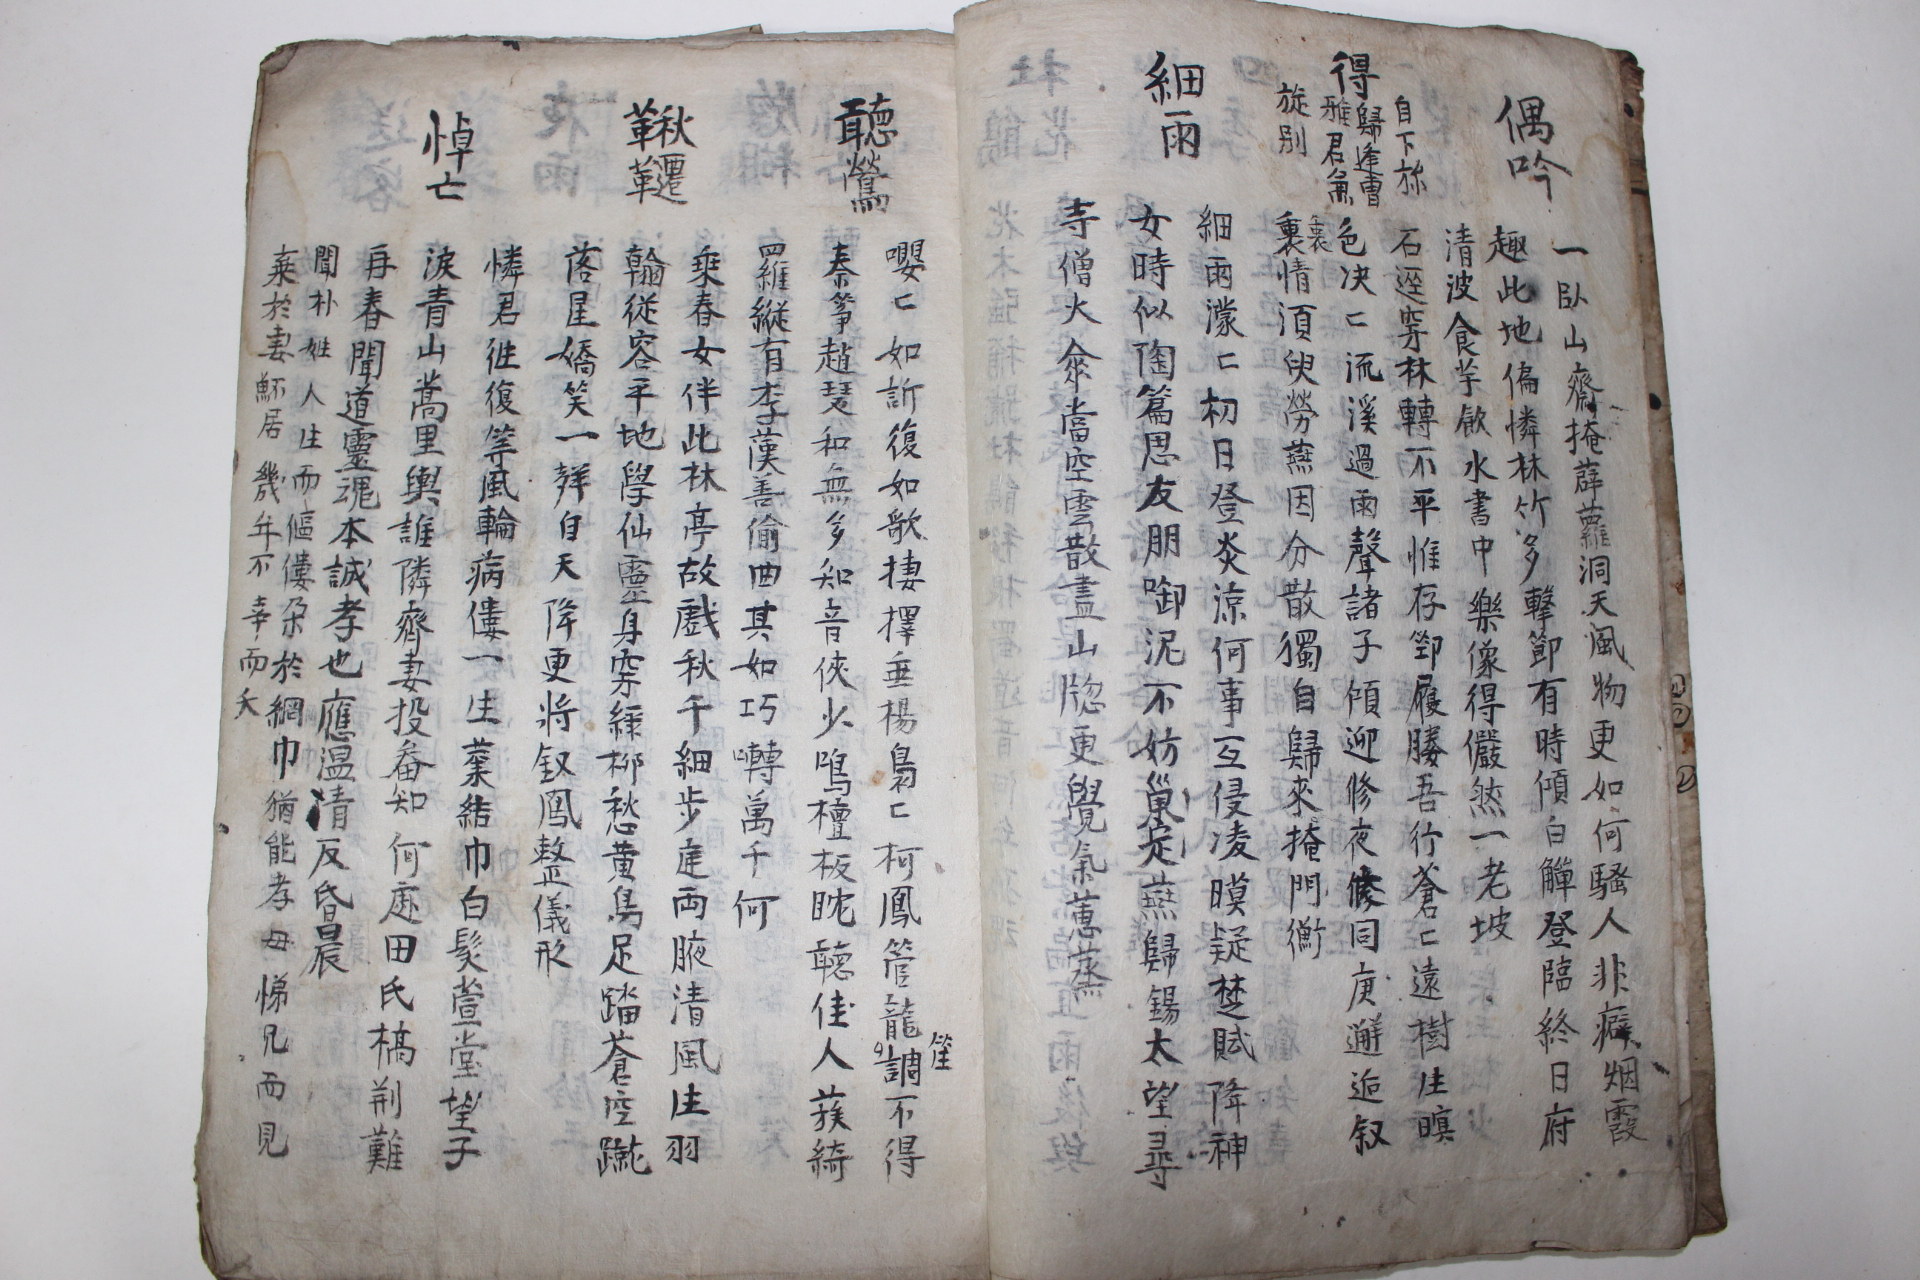 偶吟
一臥山齋掩薜蘿洞天風物更如何騷人非癖烟霞
趣此地偏憐林竹多擊節有時傾白觶登臨終日府
清波食芋飮水書中樂像得儼然一老坡
得
自下旅
歸逢曹
雅君兪
旋別
石逕穿林轉不平惟存筇履勝吾行蒼〻遠樹生暝
色决〻流溪過雨聲諸子傾迎修夜同庚邂逅叙
裏情須臾勞燕因分散獨自歸來掩門衡
衷
細雨
細雨濛〻初日登炎涼何事互侵凌暯疑楚賦降神
女時似陶篇思友朋啣泥不妨巢定燕歸錫太望尋
寺僧火傘當空雲散盡山牕更覺氣蒸
聽鶯
嚶〻如訴復如歌捿擇垂楊裊〻柯鳳管龍調不得
笙
秦箏趙瑟和無多知音俠少鳴檀板眈聽佳人蔟綺
羅縱有李漢善偷曲其如巧囀萬千何
鞦韆
乘春女伴此林亭故戲秋千細步庭両腋清風生羽
翰從容平地學仙靈身穿綠柳愁黄鳥足踏蒼空蹴
落星嬌笑一聲自天降更將釵鳳整儀形
悼亡
憐君徃復等風輪病僂一生業結巾白髮萱堂望子
淚青山蒿里輿誰隣齊妻投畚知何處田氏槁荆難
再春聞道靈魂本誠孝也應温清反昏晨
聞朴姓人生而傴僂業於綱巾猶能孝母悌兄而見
棄於妻鰥居幾年不幸而夭